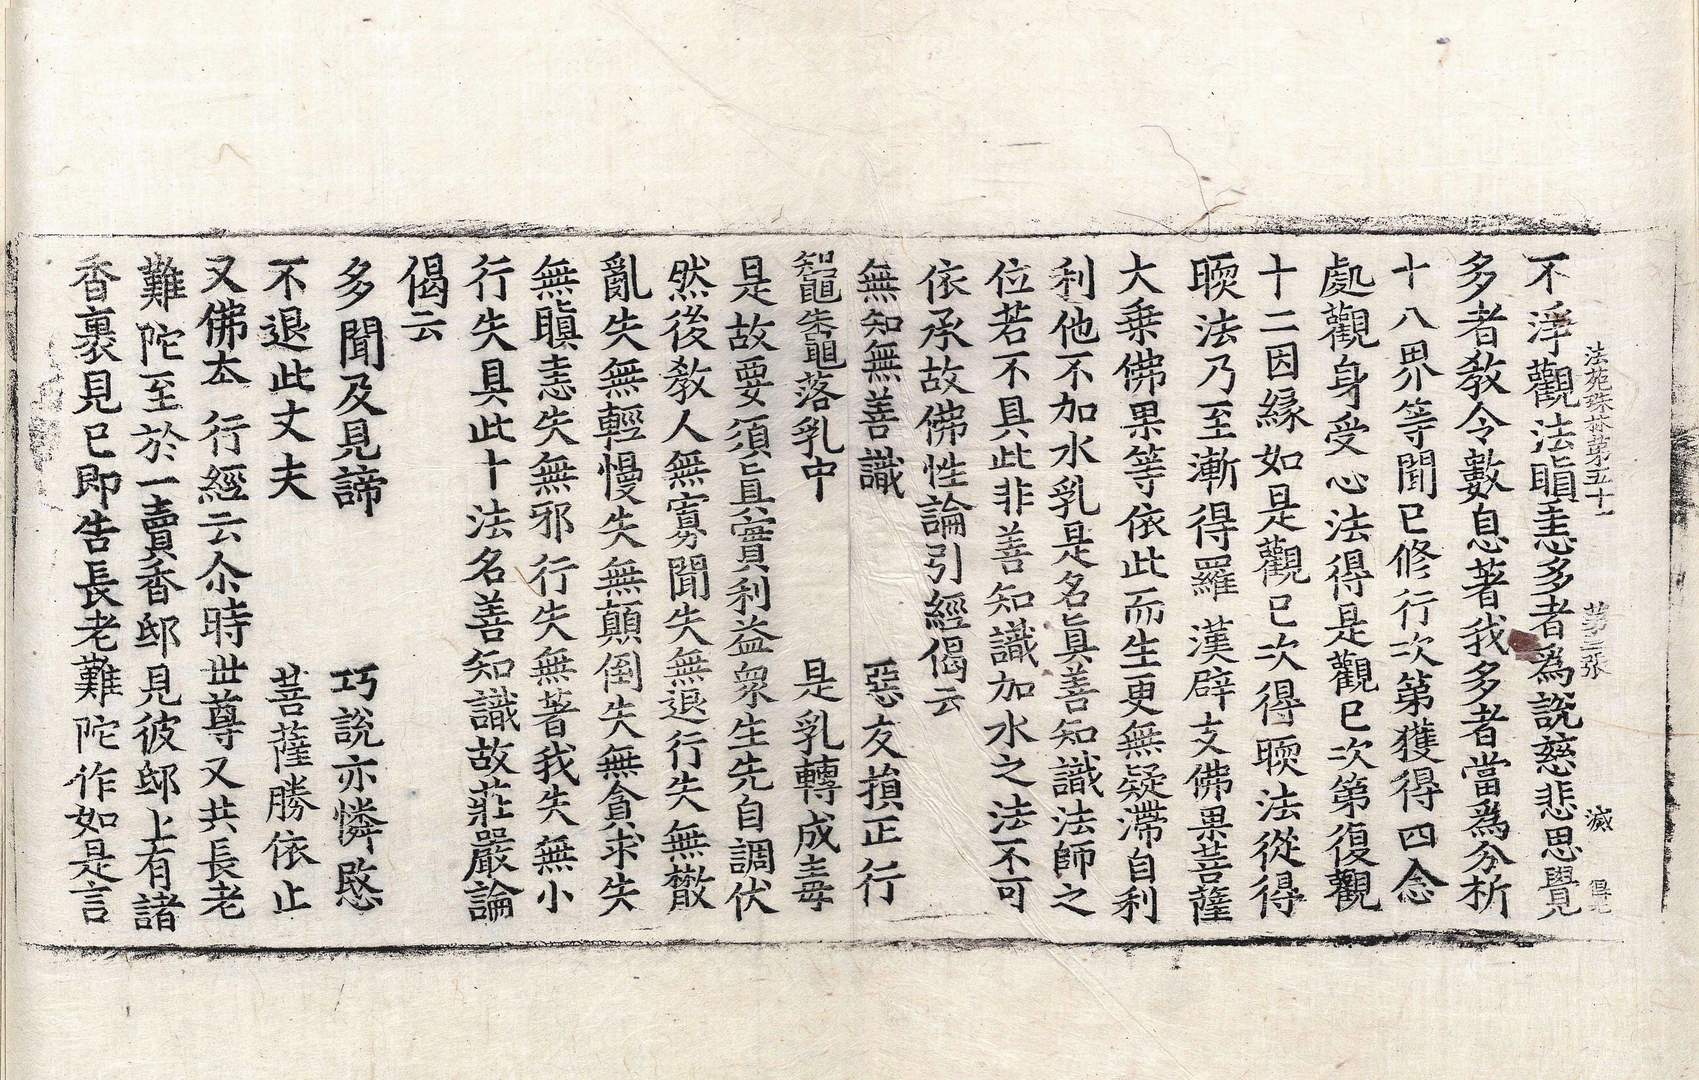 法苑珠林第五十一 第三张 滅
不淨觀法瞋恚多者為說慈悲思覺
多者敎令數息著我多者當為分析
十八界等聞已修行次第獲得四念
處觀身受心法得是觀已次第復觀
十二因緣如是觀已次得㬉法從得
㬉法乃至漸得羅漢辟支佛果菩薩
大乗佛果等依此而生更無疑滯自利
利他不加水乳是名真善知識法師之
位若不具此非善知識加水之法不可
依承故佛性論引經偈云
無知無善識 惡友損正行
蜘蛛落乳中 是乳轉成毒
是故要須真實利益衆生先自調伏
然後敎人無寡聞失無退行失無散
亂失無輕慢失無顛倒失無貪求失
無瞋恚失無邪行失無著我失無小
行失具此十法名善知識故莊嚴論
偈云
多聞及見諦 巧說亦憐愍
不退此丈夫 菩薩勝依止
又佛夲行經云尒時世尊又共長老
難陀至於一賣香邸見彼邸上有諸
香裹見已即告長老難陀作如是言